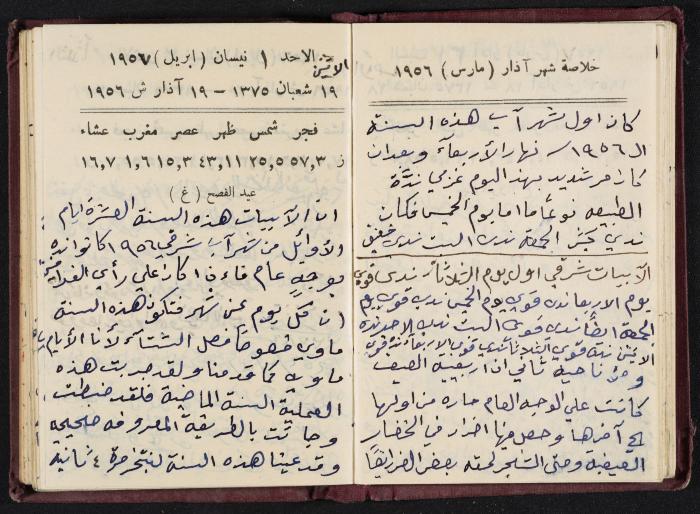 خلاصة شهر آذار (مارس) ١٩٥٦
كان اول شهر آب هذه السنة
ال ١٩٥٦ نهار الأربعاء وبعد ان
كان حر شديد بهذا اليوم غزي ندّة
الطبيعه نوعاً ما اما يوم الخميس فكان
ندي كثير الجمعة ندى السبت ندي خفيف
الآبيات شرقي اول يوم الثلاثاء ندى قوي
يوم الاربعا ندى قوي يوم الخميس ندي قوي يوم
الجمعة ايضاً ندى قوي السبت ندى الاحد ندة
الاثنين ندة قوي الثلاثا ندي قوي الاربعا ندة قوي
ومن ناحية ثاني ان اربعنية الصيف
كانت على الوجه العام حاره من اولها
الى آخرها وحصل منها اضرار في الخضار
الصيفية وحتى الشجر لحقه بعض الضرايضاً
الاحد ١ نيسان (ابريل) ١٩٥٦
الاثنين
١٩ شعبان ١٣٧٥ – ١٩ آذار ش ١٩٥٦
فجر شمس ظهر عصر مغرب عشاء
ز ٣,٥٧ ٥,٢٥ ١١,٤٣ ٣,١٥ ٦,١ ٧,١٦
عيد الفصح (غ)
ان الآبيات هذه السنة العشرة ايام
الأوائل من شهر آب شرقي ١٩٥٦ كانوا نده
بوجه عام فاءذا كان على رأي القدامى
ان كل يوم عن شهر فتكون هذه السنة
ماوي خصوصا فصل الشتاء لان الأيام
ماويه كما قدمنا ولقد جربت هذه
العملية السنة الماضية فلقد ضبطت
وجائت بالطريقة المعروفه صحيحه
وقد عينا هذه السنة لنتخذ مرة ثانيه